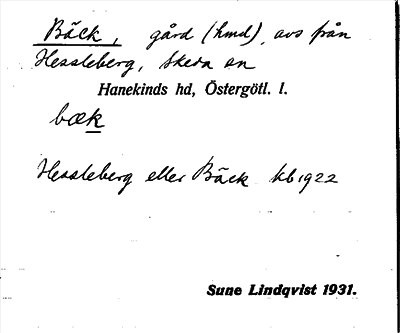 Bäck, gård (hmd), avs från
Hessleberg, Skeda sn
Hanekinds hd, Östergötl. l.
bæk
Hessleberg eller Bäck kb 1922
Sune Lindqvist 1931.